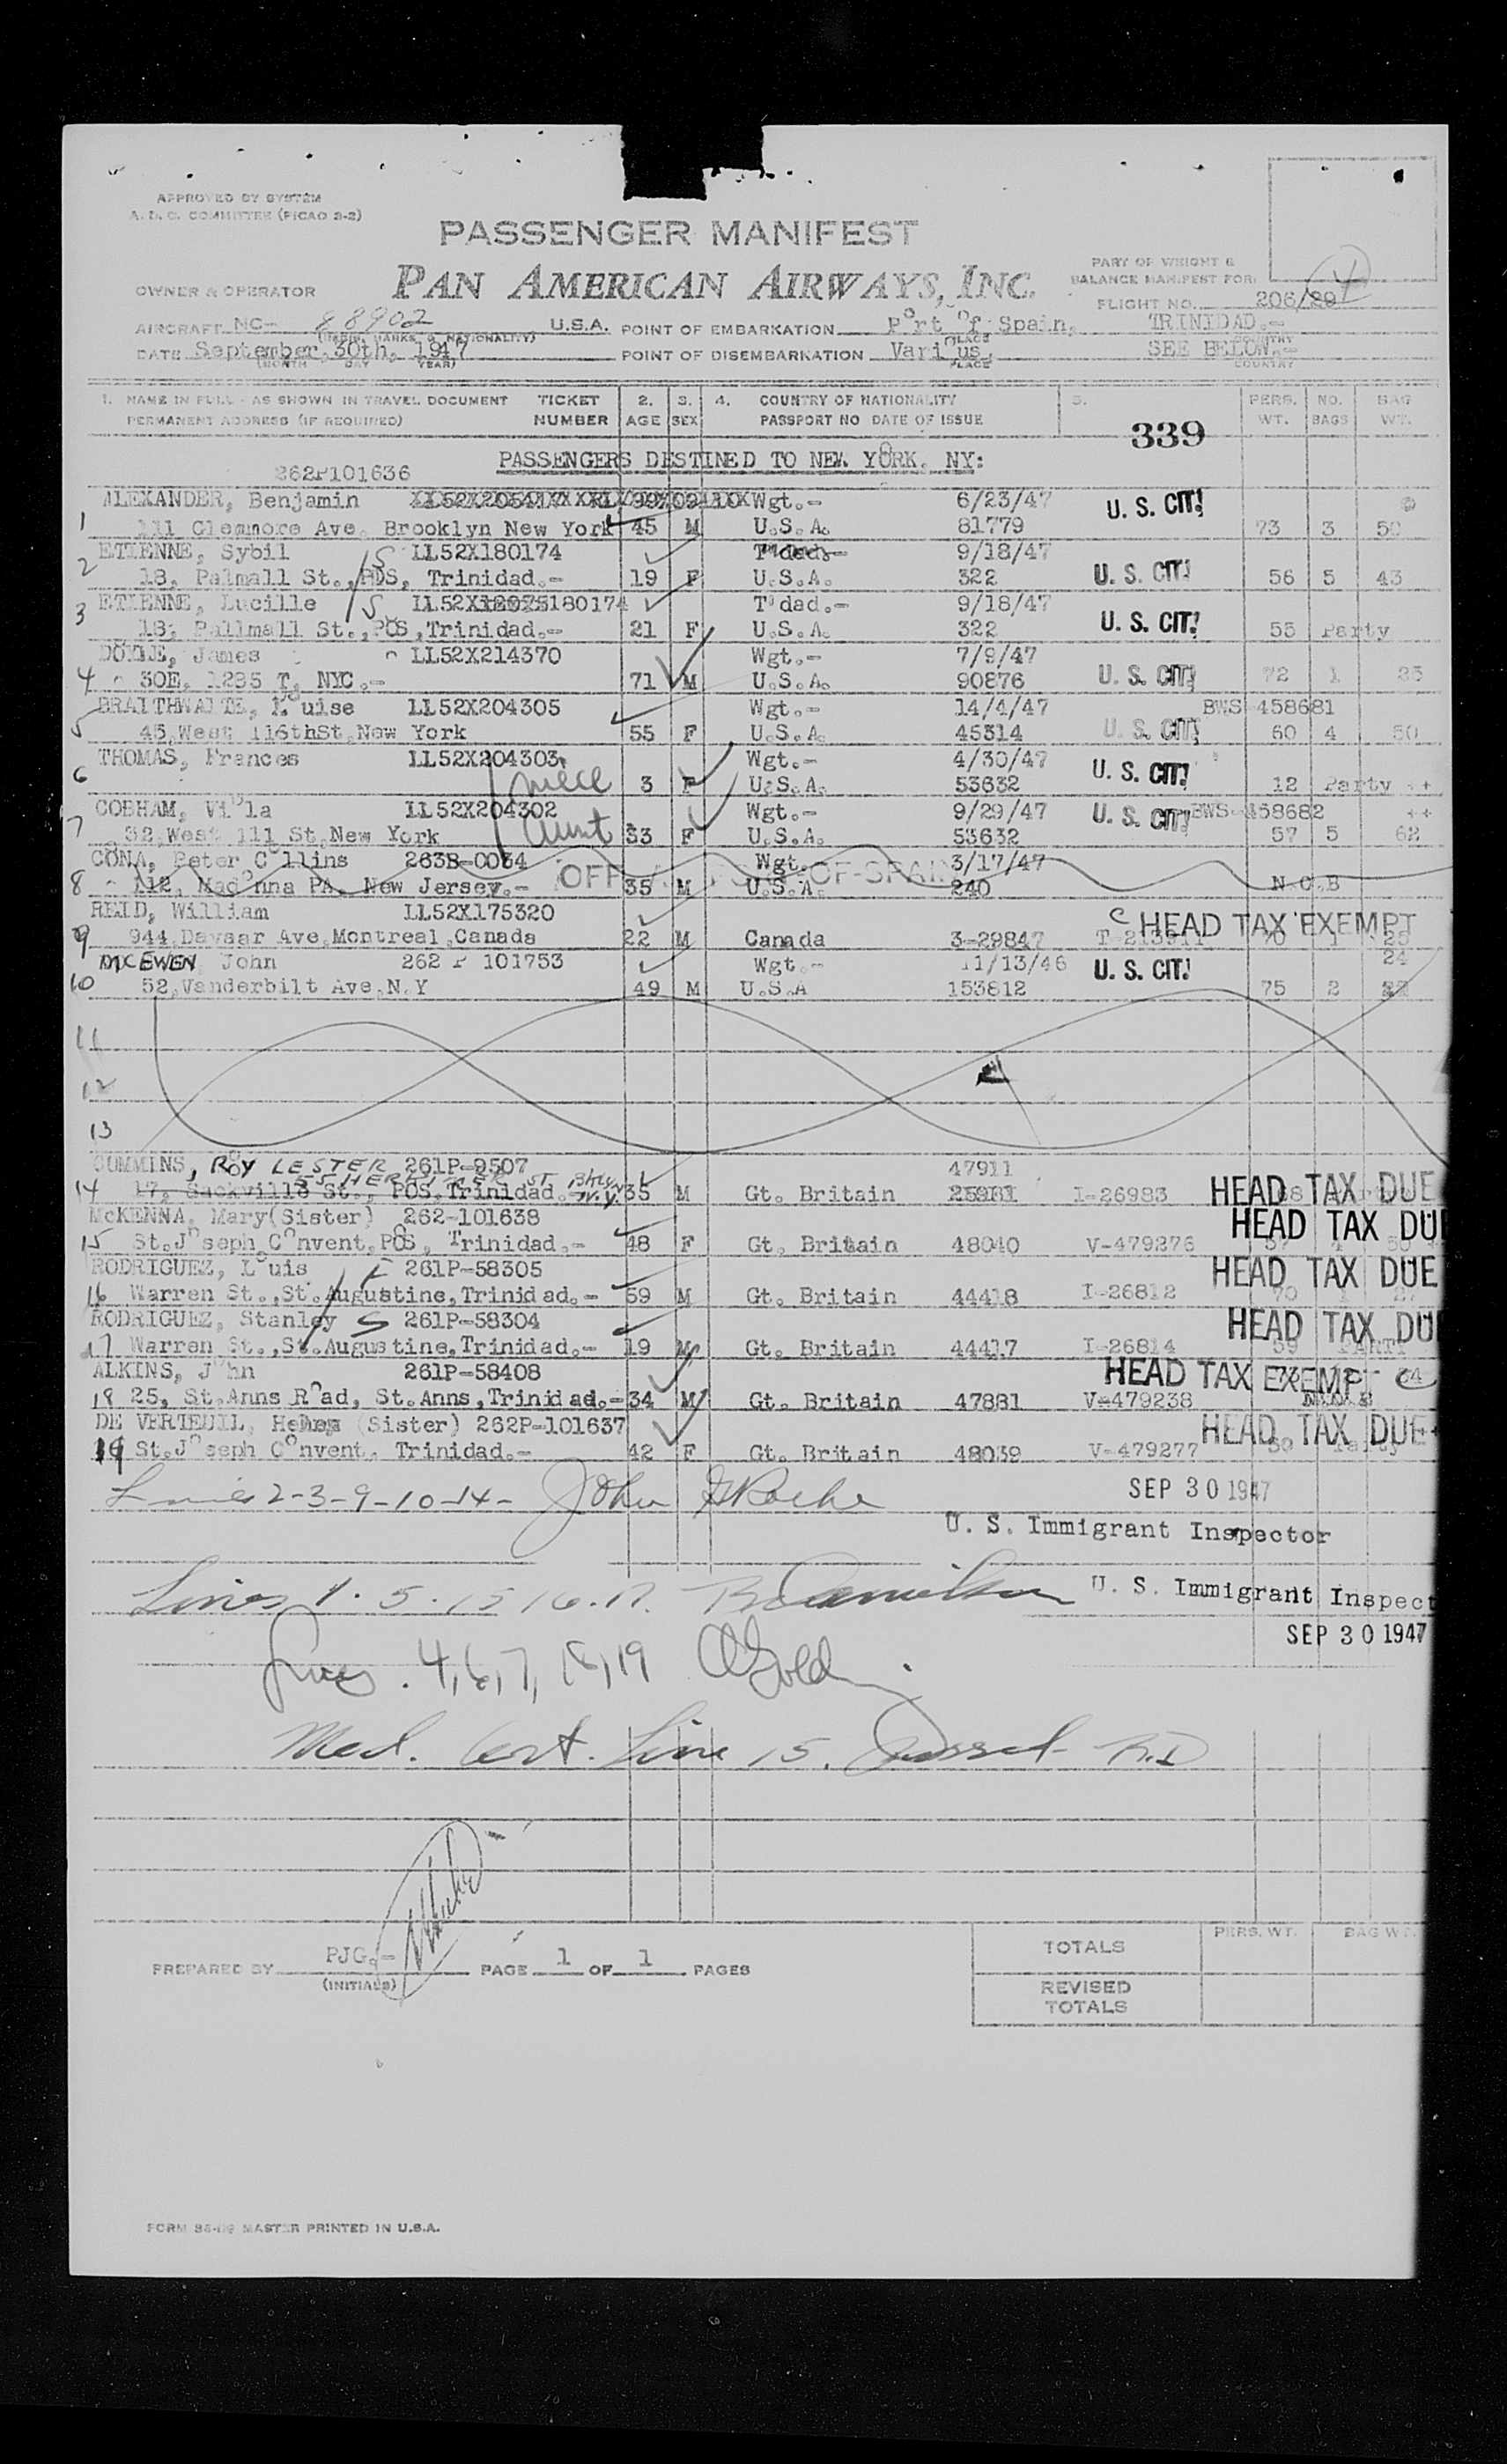 APPROVED BY SYSTEM
A. D. C. COMMITTEE (PICAO 2-2)
PASSENGER MANIFEST
PAN AMERICAN AIRWAYS, INC.
PART OF WEIGHT &
BALANCE MANIFEST FOR:
4
OWNER & OPERATOR
FLIGHT NO. 206/29
AIRCRAFT NC- 88902 U.S.A. POINT OF EMBARKATION Port of Spain, TRINIDAD.-
DATE September, 30th, 1947 POINT OF DISEMBARKATION Various, SEE BELOW.-
(MONTH DAY YEAR) PLACE COUNTRY
1. NAME IN FULL - AS SHOWN IN TRAVEL DOCUMENT TICKET 2. 3. 4. COUNTRY OF NATIONALITY 5. PERS. NO. BAG
PERMANENT ADDRESS (IF REQUIRED) NUMBER AGE SEX PASSPORT NO DATE OF ISSUE WT. BAGS WT.
339
PASSENGERS DESTINED TO NEW YORK. NY:
262P101636
ALEXANDER, Benjamin Wgt.- 6/23/47 U. S. CIT!
1 111 Clemmore Ave. Brooklyn New York 45 M U.S.A. 81779 73 3 50
ETIENNE, Sybil /S LL52X180174 T'dad.- 9/18/47
2 18, Palmall St., POS, Trinidad.- 19 F U.S.A. 322 U. S. CIT! 56 5 43
ETIENNE, Lucille /S LL52X180174 T'dad.- 9/18/47
3 18; Pallmall St., POS, Trinidad.- 21 F U.S.A. 322 U. S. CIT! 55 Party
DOYLE, James LL52X214370 Wgt.- 7/9/47
4 30E, 1285 T, NYC.- 71 M U.S.A. 90876 U. S. CIT! 72 1 25
BRAITHWAITE, Louise LL52X204305 Wgt.- 14/4/47 BWS 458681
5 45, West 116thSt, New York 55 F U.S.A. 45314 U. S. CIT! 60 4 50
THOMAS, Frances LL52X204303 Wgt.- 4/30/47
6 niece 3 F U.S.A. 53632 U. S. CIT! 12 Party ++
COBHAM, Viola LL52X204302 Wgt.- 9/29/47 U. S. CIT! BWS-458682 ++
7 52, West 111 St, New York aunt 33 F U.S.A. 53632 57 5 62
CONA, Peter Collins 263B-0034 Wgt. 3/17/47
OFF PORT-OF-SPAIN
8 112, Madonna PA. New Jersey.- 35 M U.S.A. 240 N.O.B
REID, William LL52X175320 C HEAD TAX EXEMPT
9 944, Davaar Ave, Montreal, Canada 22 M Canada 3-29847 70 1 25
MCEWEN John 262 P 101753 Wgt.- 11/13/46 U. S. CIT! 24
10 52, Vanderbilt Ave, N.Y 49 M U.S.A 153812 75 2
11
12
13
CUMMINS, ROY LESTER 261P-9507 47911
55 HERKIMER ST Bklyn N.Y.
14 17, Sackville St., POS. Trinidad.- 35 M Gt. Britain I-26983 HEAD TAX DUE
McKENNA, Mary(Sister) 262-101638 HEAD TAX DUE
15 St. Joseph Convent, POS, Trinidad.- 48 F Gt. Britain 48040 V-479276 57 4 50
RODRIGUEZ, Louis / F 261P-58305 HEAD TAX DUE
16 Warren St., St. Augustine, Trinidad.- 59 M Gt. Britain 44418 I-26812 70 1 27
RODRIGUEZ, Stanley S 261P-58304 HEAD TAX DUE
17 Warren St., St. Augustine, Trinidad.- 19 M Gt. Britain 44417 I-26814 59 PARTY
ALKINS, John 261P-58408 HEAD TAX EXEMPT C
18 25, St. Anns Road, St. Anns, Trinidad.- 34 M Gt. Britain 47881 V-479238
DE VERTEUIL, (Sister) 262P-101637 HEAD TAX DUE
19 St. Joseph Convent. Trinidad.- 42 F Gt. Britain 48039 V-479277
Lines 2-3-9-10-14- John Roche SEP 30 1947
U. S. Immigrant Inspector
Lines 1. 5. 15 16. 17. U. S. Immigrant Inspect
SEP 30 1947
Lines. 4, 6, 7, 18, 19
Med. Cert. Line 15.
PREPARED BY PJG.- PAGE 1 OF 1 PAGES
(INITIALS)
PERS. WT. BAG WT.
TOTALS
REVISED
TOTALS
MASTER PRINTED IN U.S.A.